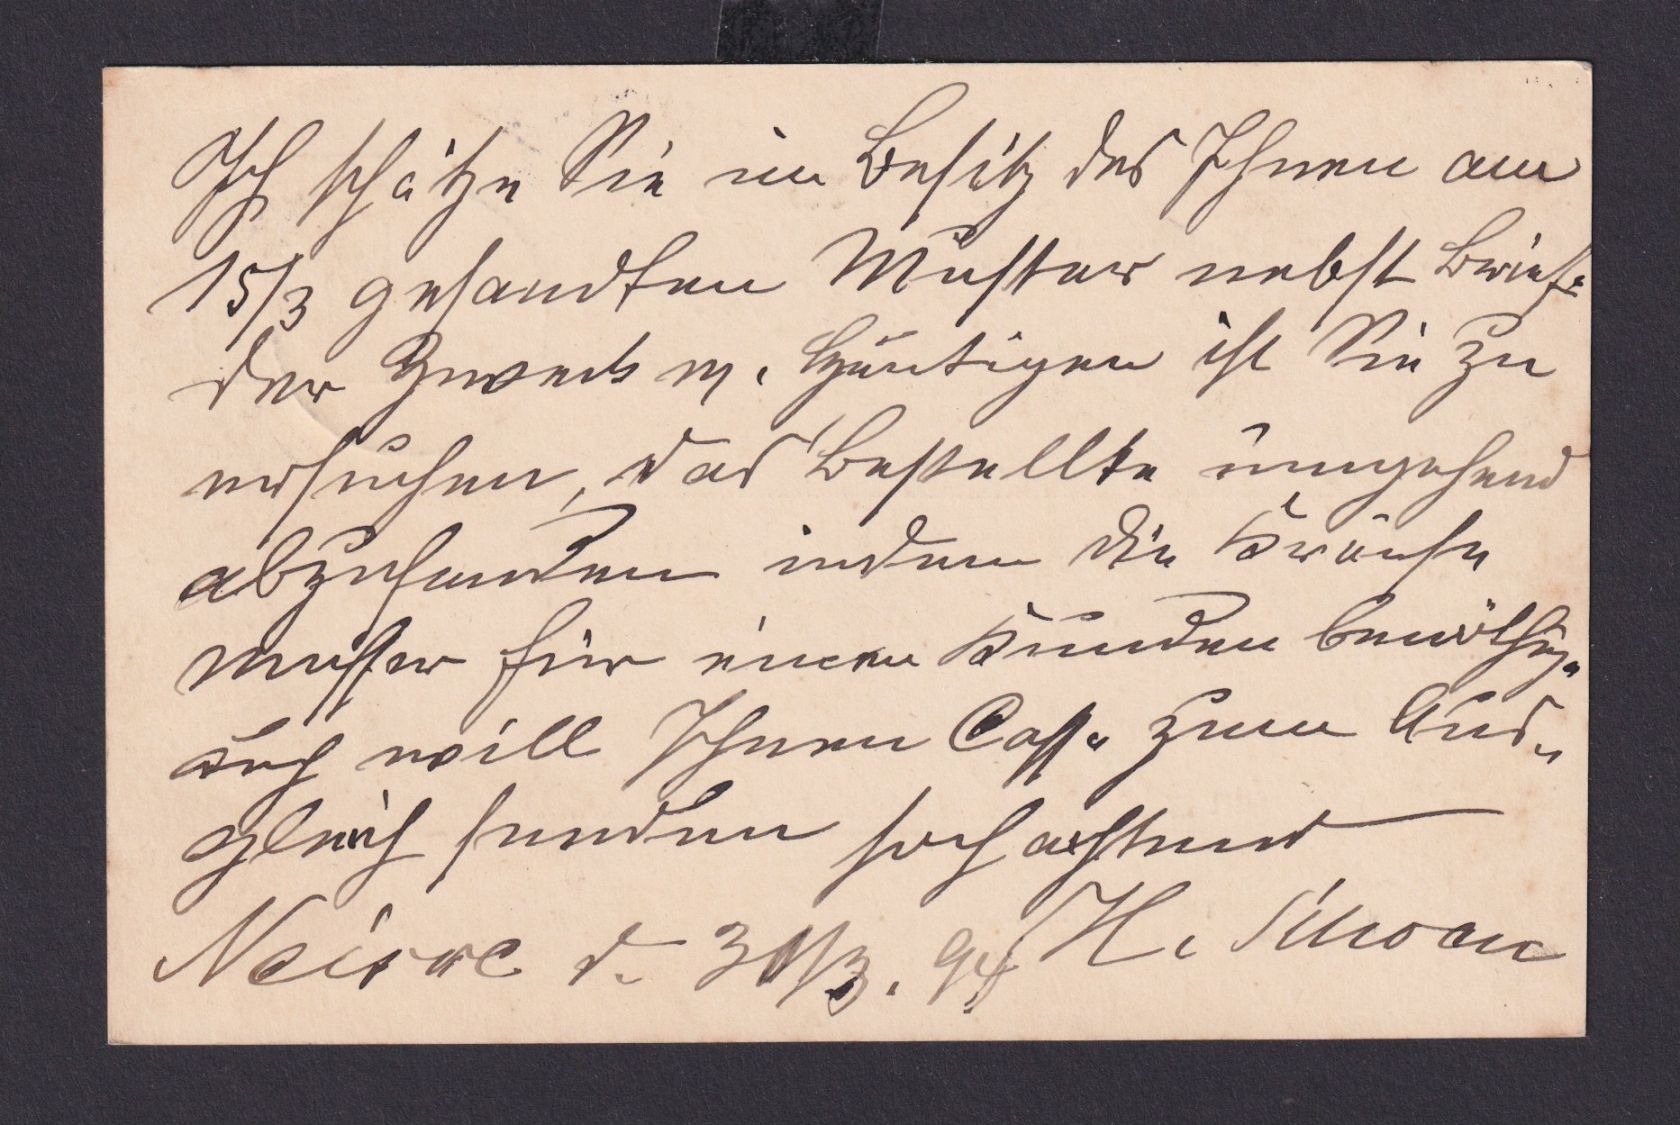 Ich schätze Sie im Besitz des Ihnen am
15/3 gesandten Muster nebst Brief.
der Zweck m. Heutigen ist Sie zu
ersuchen, das Bestellte umgehend
abzusenden indem die
muster für einen Kunden benöthige
auch will Ihnen Cassa zum Aus-
gleich senden hochachtend
Neisse d. 31/3. 94 H. Simon